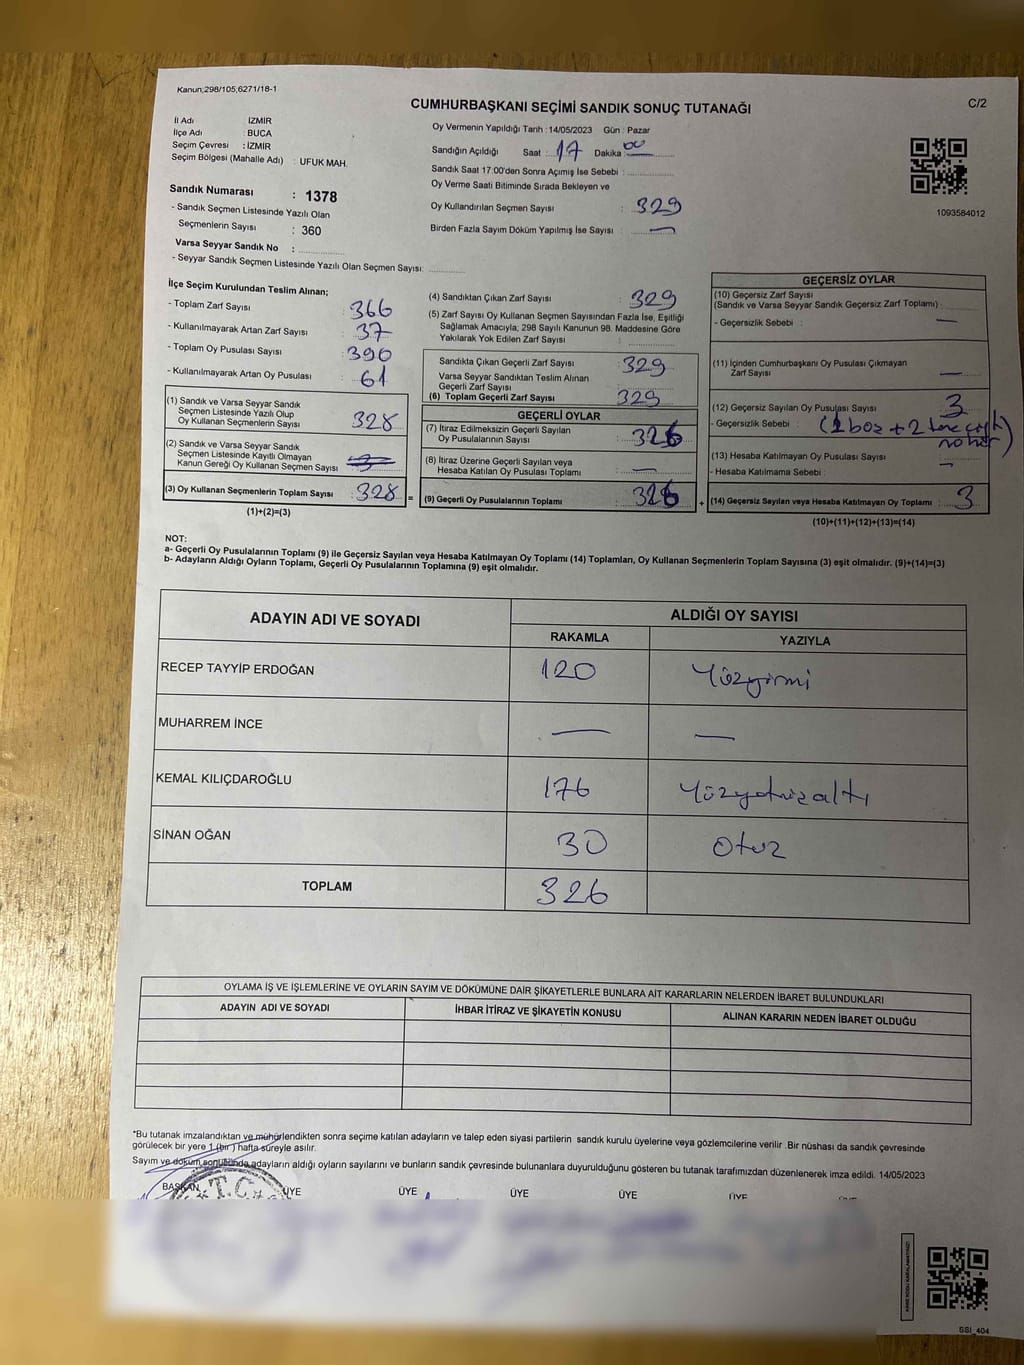 Kanun;298/105,6271/18-1
C/2
CUMHURBAŞKANI SEÇİMİ SANDIK SONUÇ TUTANAĞI
İl Adı İZMİR
İlçe Adı : BUCA
Seçim Çevresi : İZMİR
Seçim Bölgesi (Mahalle Adı) : UFUK MAH.
Sandık Numarası : 1378
- Sandık Seçmen Listesinde Yazılı Olan
Seçmenlerin Sayısı : 360
Varsa Seyyar Sandık No :
- Seyyar Sandık Seçmen Listesinde Yazılı Olan Seçmen Sayısı:
Oy Vermenin Yapıldığı Tarih : 14/05/2023 Gün : Pazar
Sandığın Açıldığı Saat : 17 Dakika : 00
Sandık Saat 17:00'den Sonra Açımış İse Sebebi :
Oy Verme Saati Bitiminde Sırada Bekleyen ve
Oy Kullandırılan Seçmen Sayısı : 329
Birden Fazla Sayım Döküm Yapılmış İse Sayısı : —
1093584012
İlçe Seçim Kurulundan Teslim Alınan;
- Toplam Zarf Sayısı : 366
- Kullanılmayarak Artan Zarf Sayısı : 37
- Toplam Oy Pusulası Sayısı : 390
- Kullanılmayarak Artan Oy Pusulası : 61
(1) Sandık ve Varsa Seyyar Sandık
Seçmen Listesinde Yazılı Olup
Oy Kullanan Seçmenlerin Sayısı : 328
(2) Sandık ve Varsa Seyyar Sandık
Seçmen Listesinde Kayıtlı Olmayan
Kanun Gereği Oy Kullanan Seçmen Sayısı
(3) Oy Kullanan Seçmenlerin Toplam Sayısı : 328 =
(1)+(2)=(3)
(4) Sandıktan Çıkan Zarf Sayısı : 329
(5) Zarf Sayısı Oy Kullanan Seçmen Sayısından Fazla İse, Eşitliği
Sağlamak Amacıyla; 298 Sayılı Kanunun 98. Maddesine Göre
Yakılarak Yok Edilen Zarf Sayısı :
Sandıkta Çıkan Geçerli Zarf Sayısı : 329
Varsa Seyyar Sandıktan Teslim Alınan
Geçerli Zarf Sayısı
(6) Toplam Geçerli Zarf Sayısı : 329
GEÇERLİ OYLAR
(7) İtiraz Edilmeksizin Geçerli Sayılan
Oy Pusulalarının Sayısı : 326
(8) İtiraz Üzerine Geçerli Sayılan veya
Hesaba Katılan Oy Pusulası Toplamı : —
(9) Geçerli Oy Pusulalarının Toplamı : 326 +
GEÇERSİZ OYLAR
(10) Geçersiz Zarf Sayısı
(Sandık ve Varsa Seyyar Sandık Geçersiz Zarf Toplamı) :
- Geçersizlik Sebebi : —
(11) İçinden Cumhurbaşkanı Oy Pusulası Çıkmayan
Zarf Sayısı : —
(12) Geçersiz Sayılan Oy Pusulası Sayısı : 3
- Geçersizlik Sebebi : (1 boş + 2 tane çift
mühür)
(13) Hesaba Katılmayan Oy Pusulası Sayısı : —
- Hesaba Katılmama Sebebi
(14) Geçersiz Sayılan veya Hesaba Katılmayan Oy Toplamı : 3
(10)+(11)+(12)+(13)=(14)
NOT:
a- Geçerli Oy Pusulalarının Toplamı (9) ile Geçersiz Sayılan veya Hesaba Katılmayan Oy Toplamı (14) Toplamları, Oy Kullanan Seçmenlerin Toplam Sayısına (3) eşit olmalıdır. (9)+(14)=(3)
b- Adayların Aldığı Oyların Toplamı, Geçerli Oy Pusulalarının Toplamına (9) eşit olmalıdır.
ADAYIN ADI VE SOYADI ALDIĞI OY SAYISI
RAKAMLA YAZIYLA
RECEP TAYYİP ERDOĞAN 120 Yüzyirmi
MUHARREM İNCE — —
KEMAL KILIÇDAROĞLU 176 Yüzyetmişaltı
SİNAN OĞAN 30 Otuz
TOPLAM 326
OYLAMA İŞ VE İŞLEMLERİNE VE OYLARIN SAYIM VE DÖKÜMÜNE DAİR ŞİKAYETLERLE BUNLARA AİT KARARLARIN NELERDEN İBARET BULUNDUKLARI
ADAYIN ADI VE SOYADI İHBAR İTİRAZ VE ŞİKAYETİN KONUSU ALINAN KARARIN NEDEN İBARET OLDUĞU
*Bu tutanak imzalandıktan ve mühürlendikten sonra seçime katılan adayların ve talep eden siyasi partilerin sandık kurulu üyelerine veya gözlemcilerine verilir .Bir nüshası da sandık çevresinde
görülecek bir yere 1 (bir ) hafta süreyle asılır.
Sayım ve döküm sonucunda adayların aldığı oyların sayılarını ve bunların sandık çevresinde bulunanlara duyurulduğunu gösteren bu tutanak tarafımızdan düzenlenerek imza edildi. 14/05/2023
BAŞKAN ÜYE ÜYE ÜYE ÜYE ÜYE
T.C.
SSİ_404